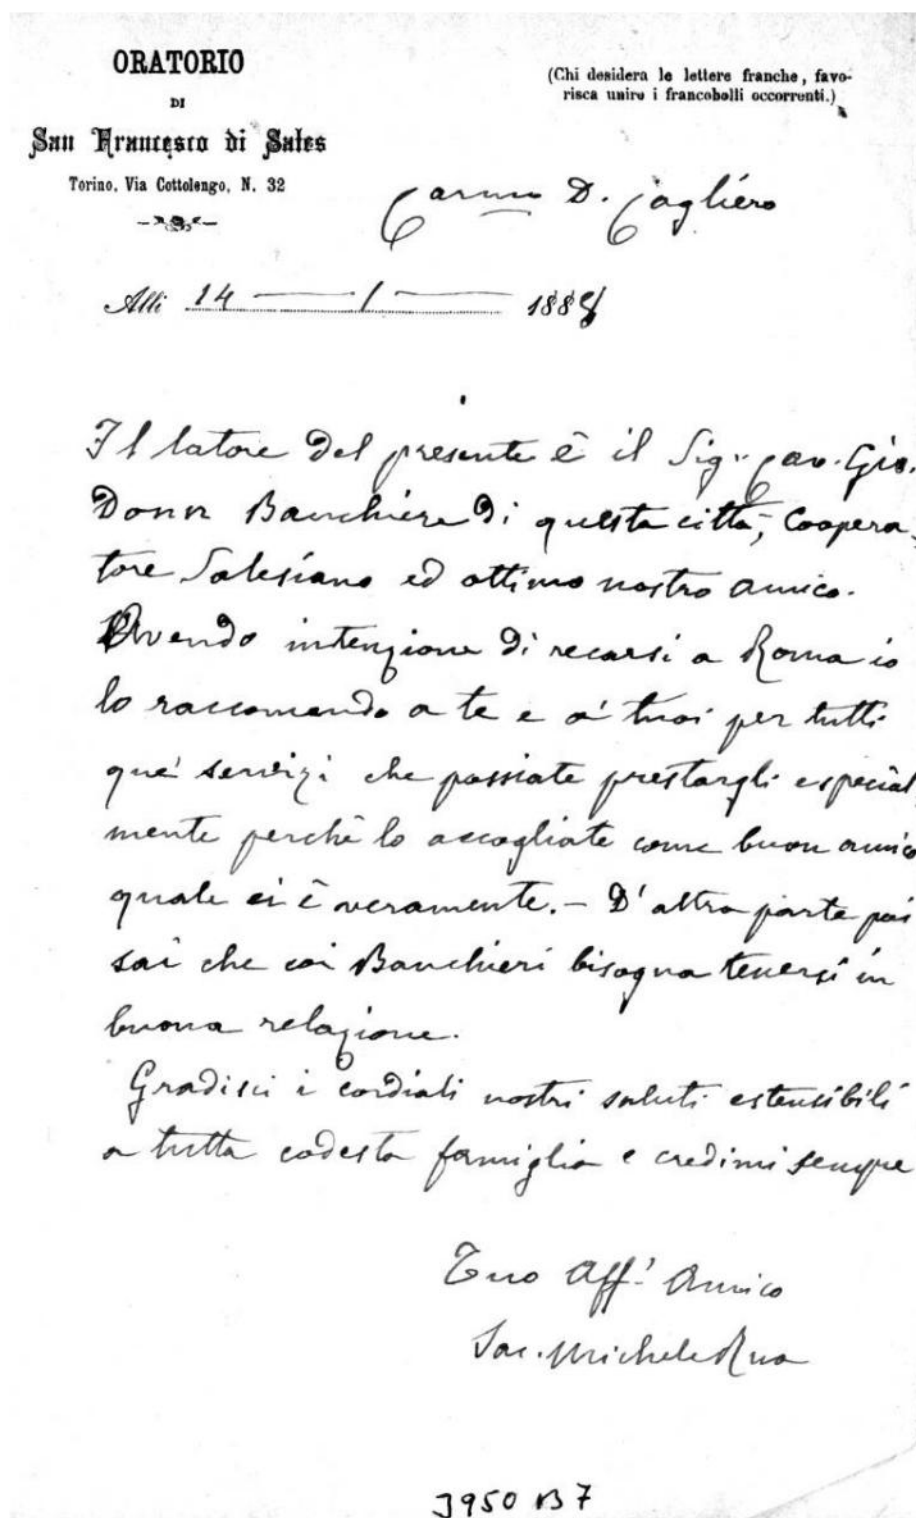 ORATORIO
DI
San Francesco di Sales
Torino, Via Cottolengo, N. 32
(Chi desidera le lettere franche, favo-
risca unire i francobolli occorrenti.)
Carmo D. Cagliero
Alli 14 — 1 — 1888
Il latore del presente è il Sig. Cav. Gio.
Donn Banchiere di questa città, Coopera-
tore Salesiano ed ottimo nostro amico.
Avendo intenzione di recarsi a Roma io
lo raccomando a te e a' tuoi per tutti
que' servizi che possiate prestargli especial
mente perchè lo accogliate come buon amico
quale ei è veramente. – D'altra parte poi
sai che coi Banchieri bisogna tenersi in
buona relazione.
Gradisci i cordiali nostri saluti estensibili
a tutta codesta famiglia e credimi sempre
Tuo Aff. Amico
Sac. Michele Rua
3950 B 7